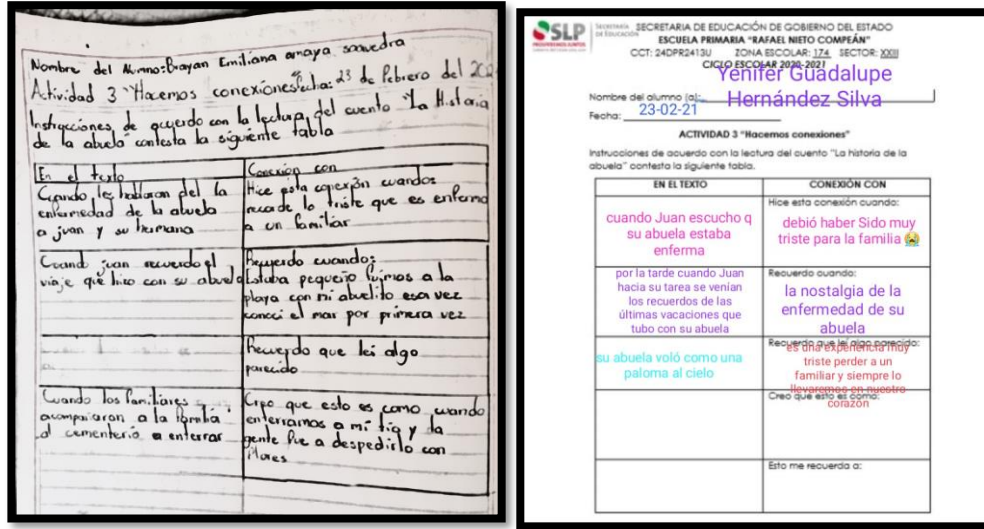 Nombre del Alumno: Brayan Emiliano amaya saavedra
Actividad 3 "Hacemos conexiones" fecha: 23 de febrero del 202
Instrucciones de acuerdo con la lectura del cuento "La Historia
de la abuela" contesta la siguiente tabla
En el texto
Conexión con
Cuando les hablaron del la
enfermedad de la abuela
a juan y su hermana
Hice esta conexión cuando:
recorde lo triste que es enfermo
a un familiar
Cuand juan recuerdo el
viaje que hizo con su abuela
Recuerdo cuando:
Estaba pequeño fuimos a la
playa con mi abuelito esa vez
conoci el mar por primera vez
Recuerdo que leí algo
parecido
Cuando los familiares
acompañaron a la familia
al cementerio a enterrar
Creo que esto es como cuando
enterramos a mi tio y la
gente fue a despedirlo con
flores
SLP
SECRETARÍA DE EDUCACIÓN
PROSPEREMOS JUNTOS
SECRETARIA DE EDUCACIÓN DE GOBIERNO DEL ESTADO
ESCUELA PRIMARIA "RAFAEL NIETO COMPEÁN"
CCT: 24DPR2413U ZONA ESCOLAR: 174 SECTOR: XXIII
CICLO ESCOLAR 2020-2021
Yenifer Guadalupe
Nombre del alumno (a): Hernández Silva
Fecha: 23-02-21
ACTIVIDAD 3 "Hacemos conexiones"
Instrucciones de acuerdo con la lectura del cuento "La historia de la
abuela" contesta la siguiente tabla.
EN EL TEXTO
CONEXIÓN CON
cuando Juan escucho q
su abuela estaba
enferma
Hice esta conexión cuando:
debió haber Sido muy
triste para la familia 😭
por la tarde cuando Juan
hacia su tarea se venían
los recuerdos de las
últimas vacaciones que
tubo con su abuela
Recuerdo cuando:
la nostalgia de la
enfermedad de su
abuela
su abuela voló como una
paloma al cielo
Recuerdo que leí algo parecido:
es una experiencia muy
triste perder a un
familiar y siempre lo
llevaremos en nuestro
corazón
Creo que esto es como:
Esto me recuerda a: